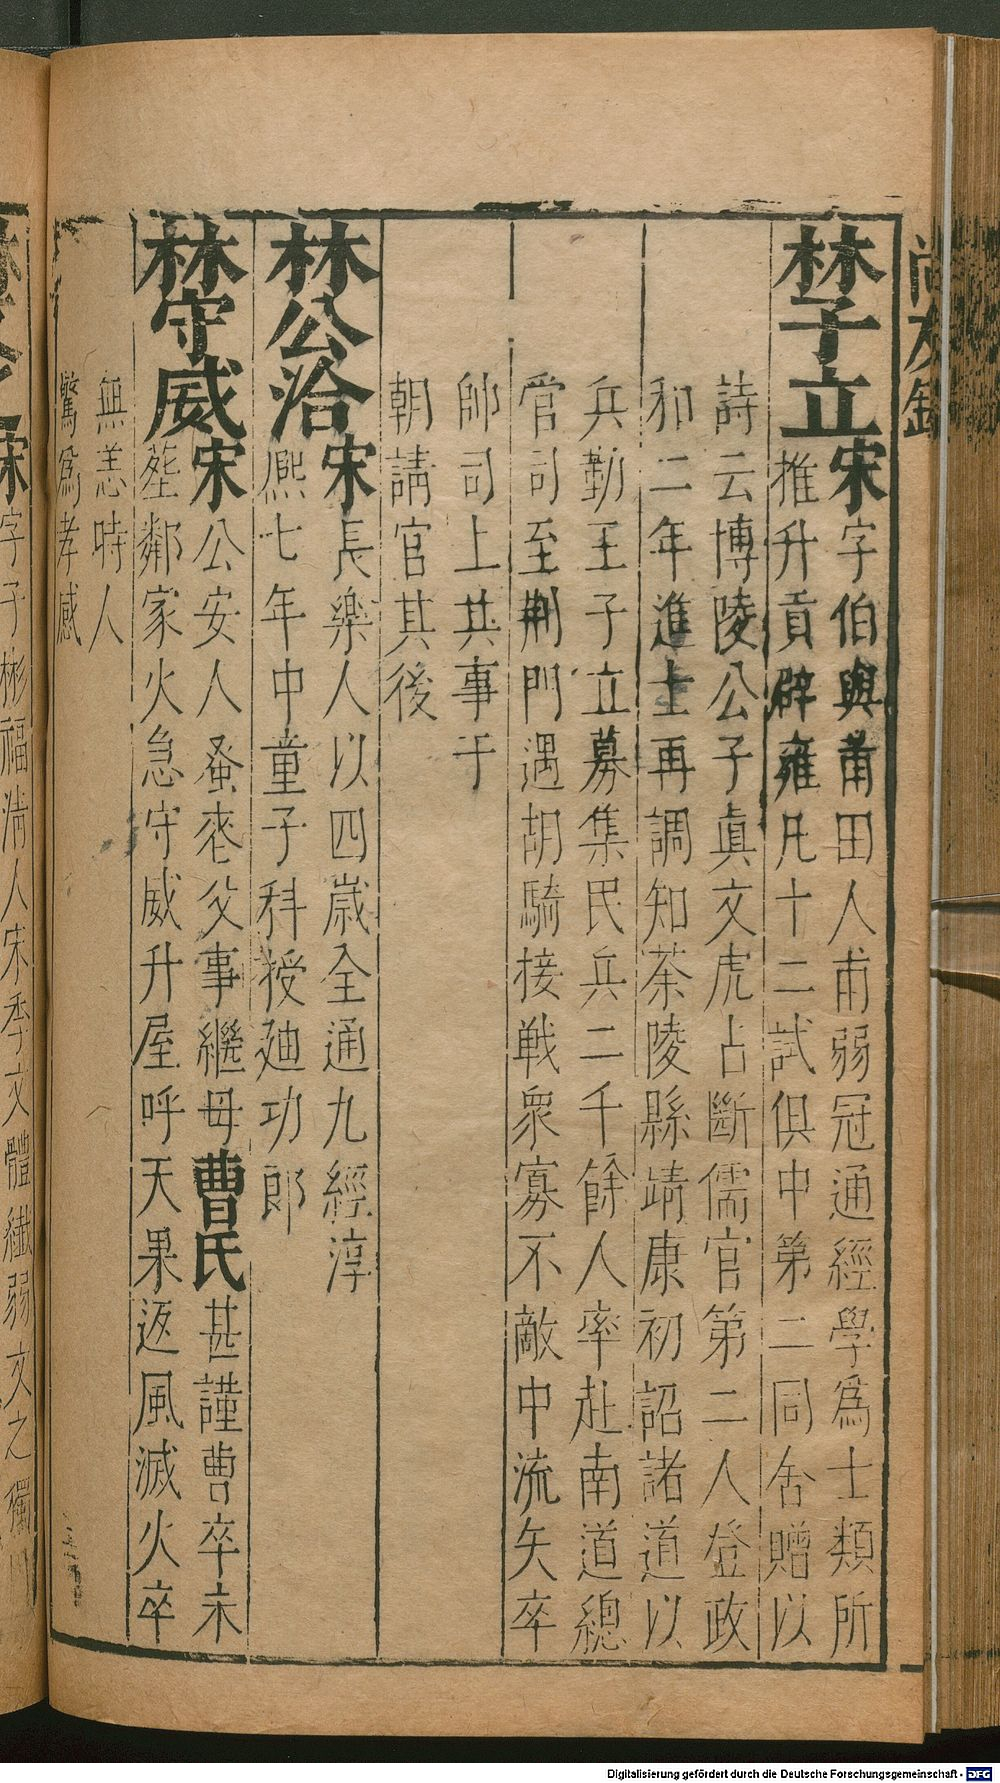 尚友錄
林子立宋字伯與莆田人甫弱冠通經學爲士類所
推升貢辟雍凡十二試俱中第二同舍贈以
詩云博陵公子眞文虎占斷儒官第二人登政
和二年進士再調知茶陵縣靖康初詔諸道以
兵勤王子立募集民兵二千餘人率赴南道總
管司至荆門遇胡騎接戦衆寡不敵中流矢卒
帥司上其事于
朝請官其後
林公洽宋長樂人以四歲全通九經淳
熈七年中童子科授廸功郎
林守威宋公安人蚤䘮父事繼母曹氏甚謹曹卒未
塟鄰家火急守威升屋呼天果返風滅火卒
無恙時人
驚爲孝感
宋字子彬福清人宋季文體纖弱文之獨
Digitalisierung gefördert durch die Deutsche Forschungsgemeinschaft - DFG